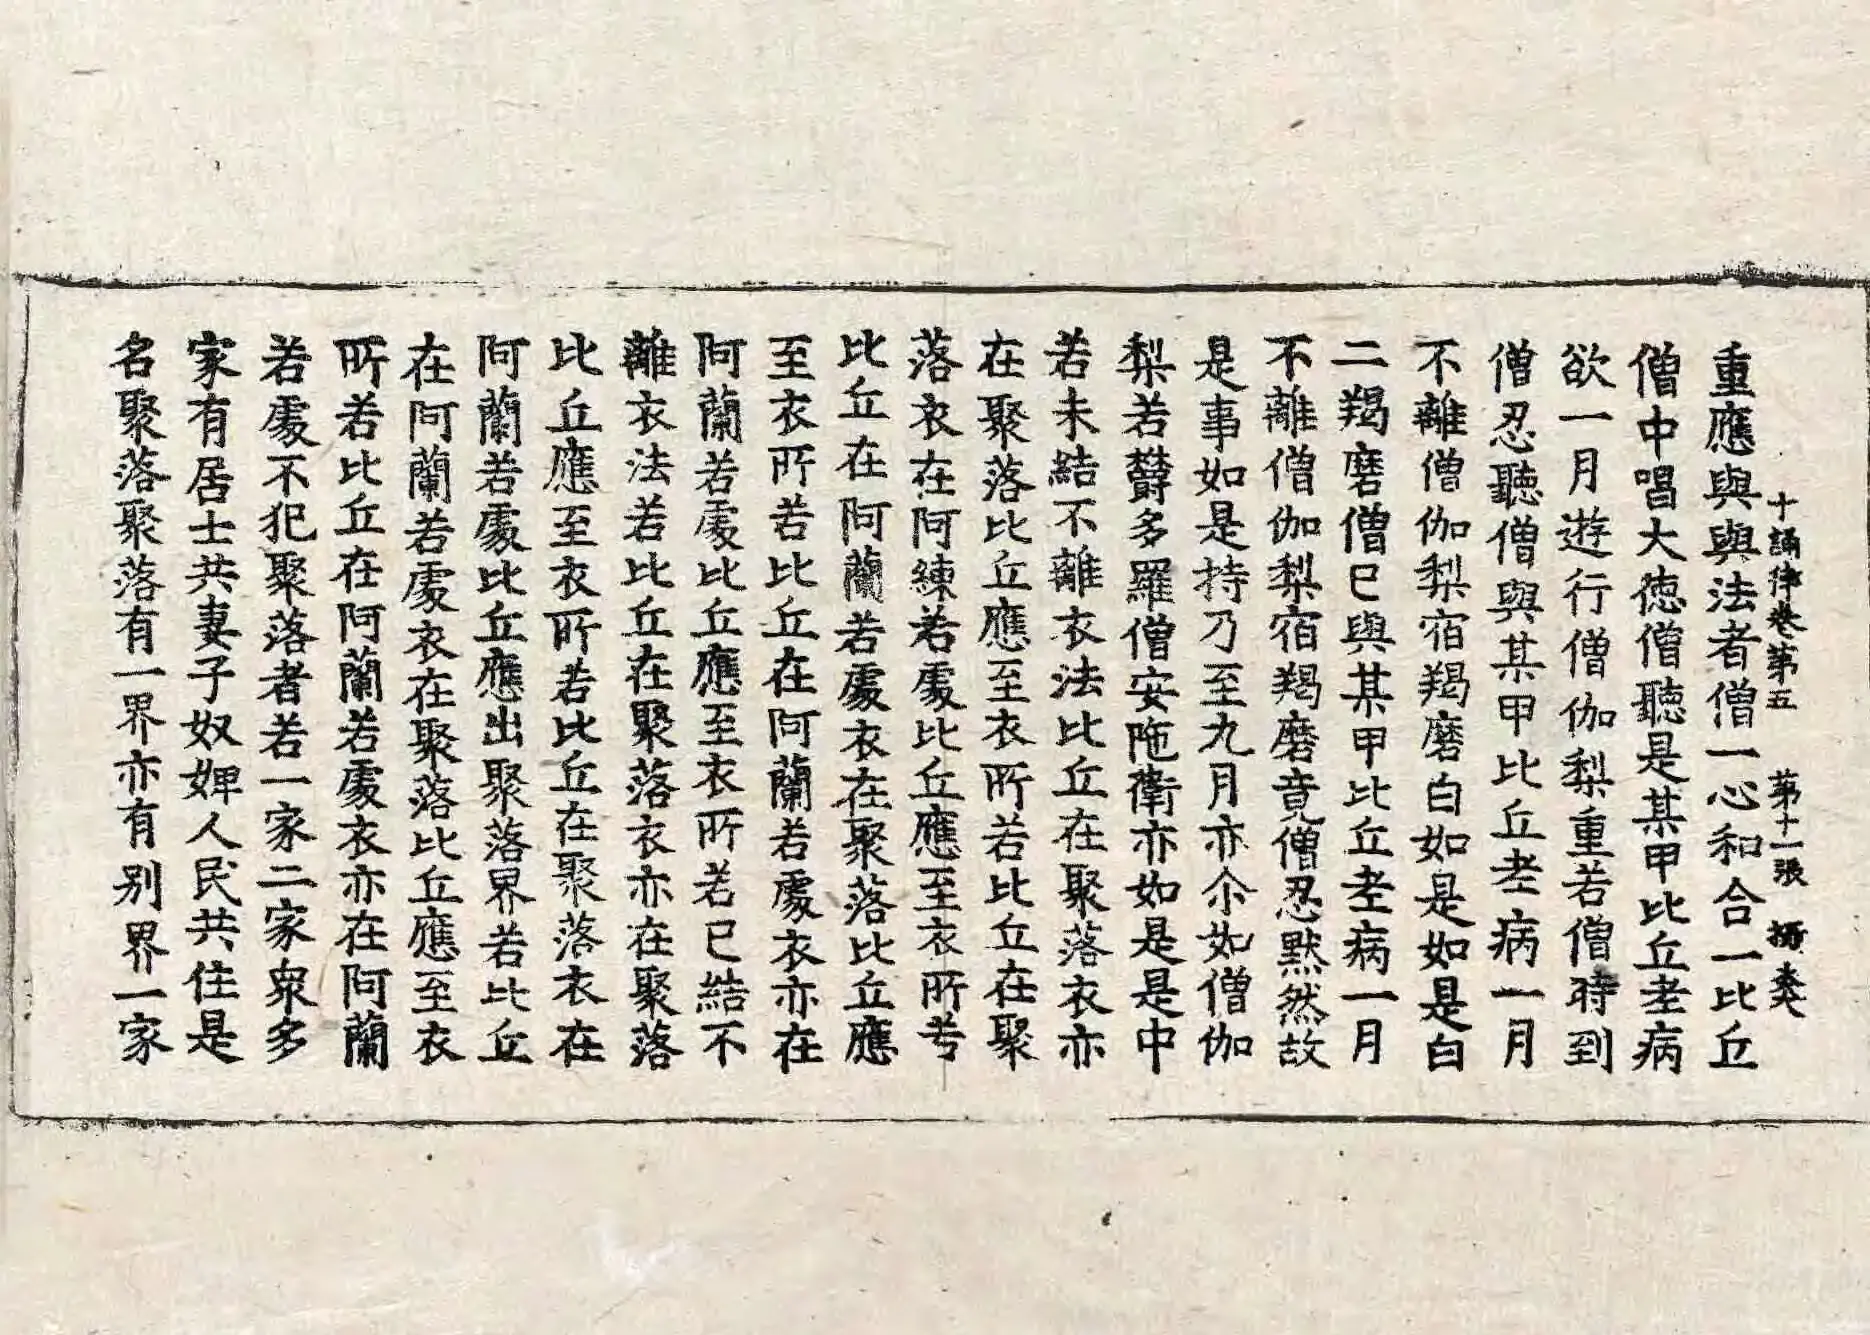 重應與與法者僧一心和合一比丘
十誦律卷第五 第十一張
僧中唱大德僧聽是某甲比丘老病
欲一月遊行僧伽梨重若僧時到
僧忍聽僧與某甲比丘老病一月
不離僧伽梨宿羯磨白如是如是白
二羯磨僧已與某甲比丘老病一月
不離僧伽梨宿羯磨竟僧忍默然故
是事如是持乃至九月亦尒如僧伽
梨若欝多羅僧安陁衛亦如是是中
若未結不離衣法比丘在聚落衣亦
在聚落比丘應至衣所若比丘在聚
落衣在阿練若處比丘應至衣所若
比丘在阿蘭若處衣在聚落比丘應
至衣所若比丘在阿蘭若處衣亦在
阿蘭若處比丘應至衣所若已結不
離衣法若比丘在聚落衣亦在聚落
比丘應至衣所若比丘在聚落衣在
阿蘭若處比丘應出聚落界若比丘
在阿蘭若處衣在聚落比丘應至衣
所若比丘在阿蘭若處衣亦在阿蘭
若處不犯聚落者若一家二家衆多
家有居士共妻子奴婢人民共住是
名聚落聚落有一界亦有別界一家